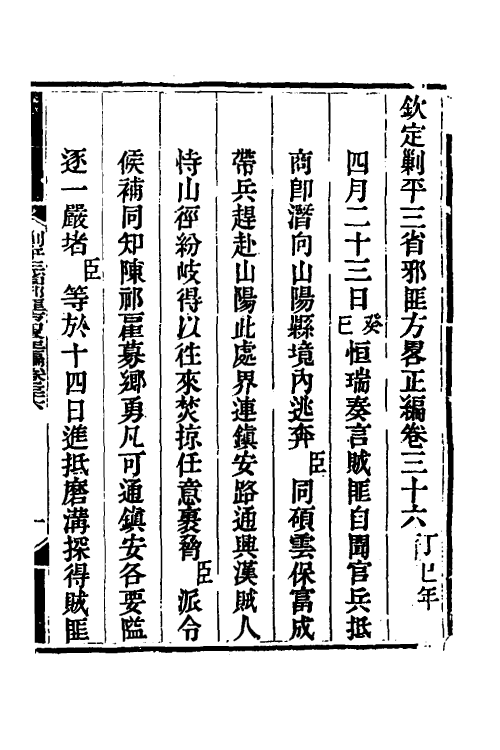 欽定剿平三省邪匪方畧正編卷三十六丁巳年
四月二十三日癸巳恒瑞奏言賊匪自聞官兵抵
商卽潛向山陽縣境內逃奔臣同碩雲保富成
帶兵趕赴山陽此處界連鎮安路通興漢賊人
恃山徑紛岐得以往來焚掠任意裹脅臣派令
候補同知陳祁雇募鄉勇凡可通鎮安各要隘
逐一嚴堵臣等於十四日進抵磨溝探得賊匪
剿平三省邪匪方畧正編卷三十六 一